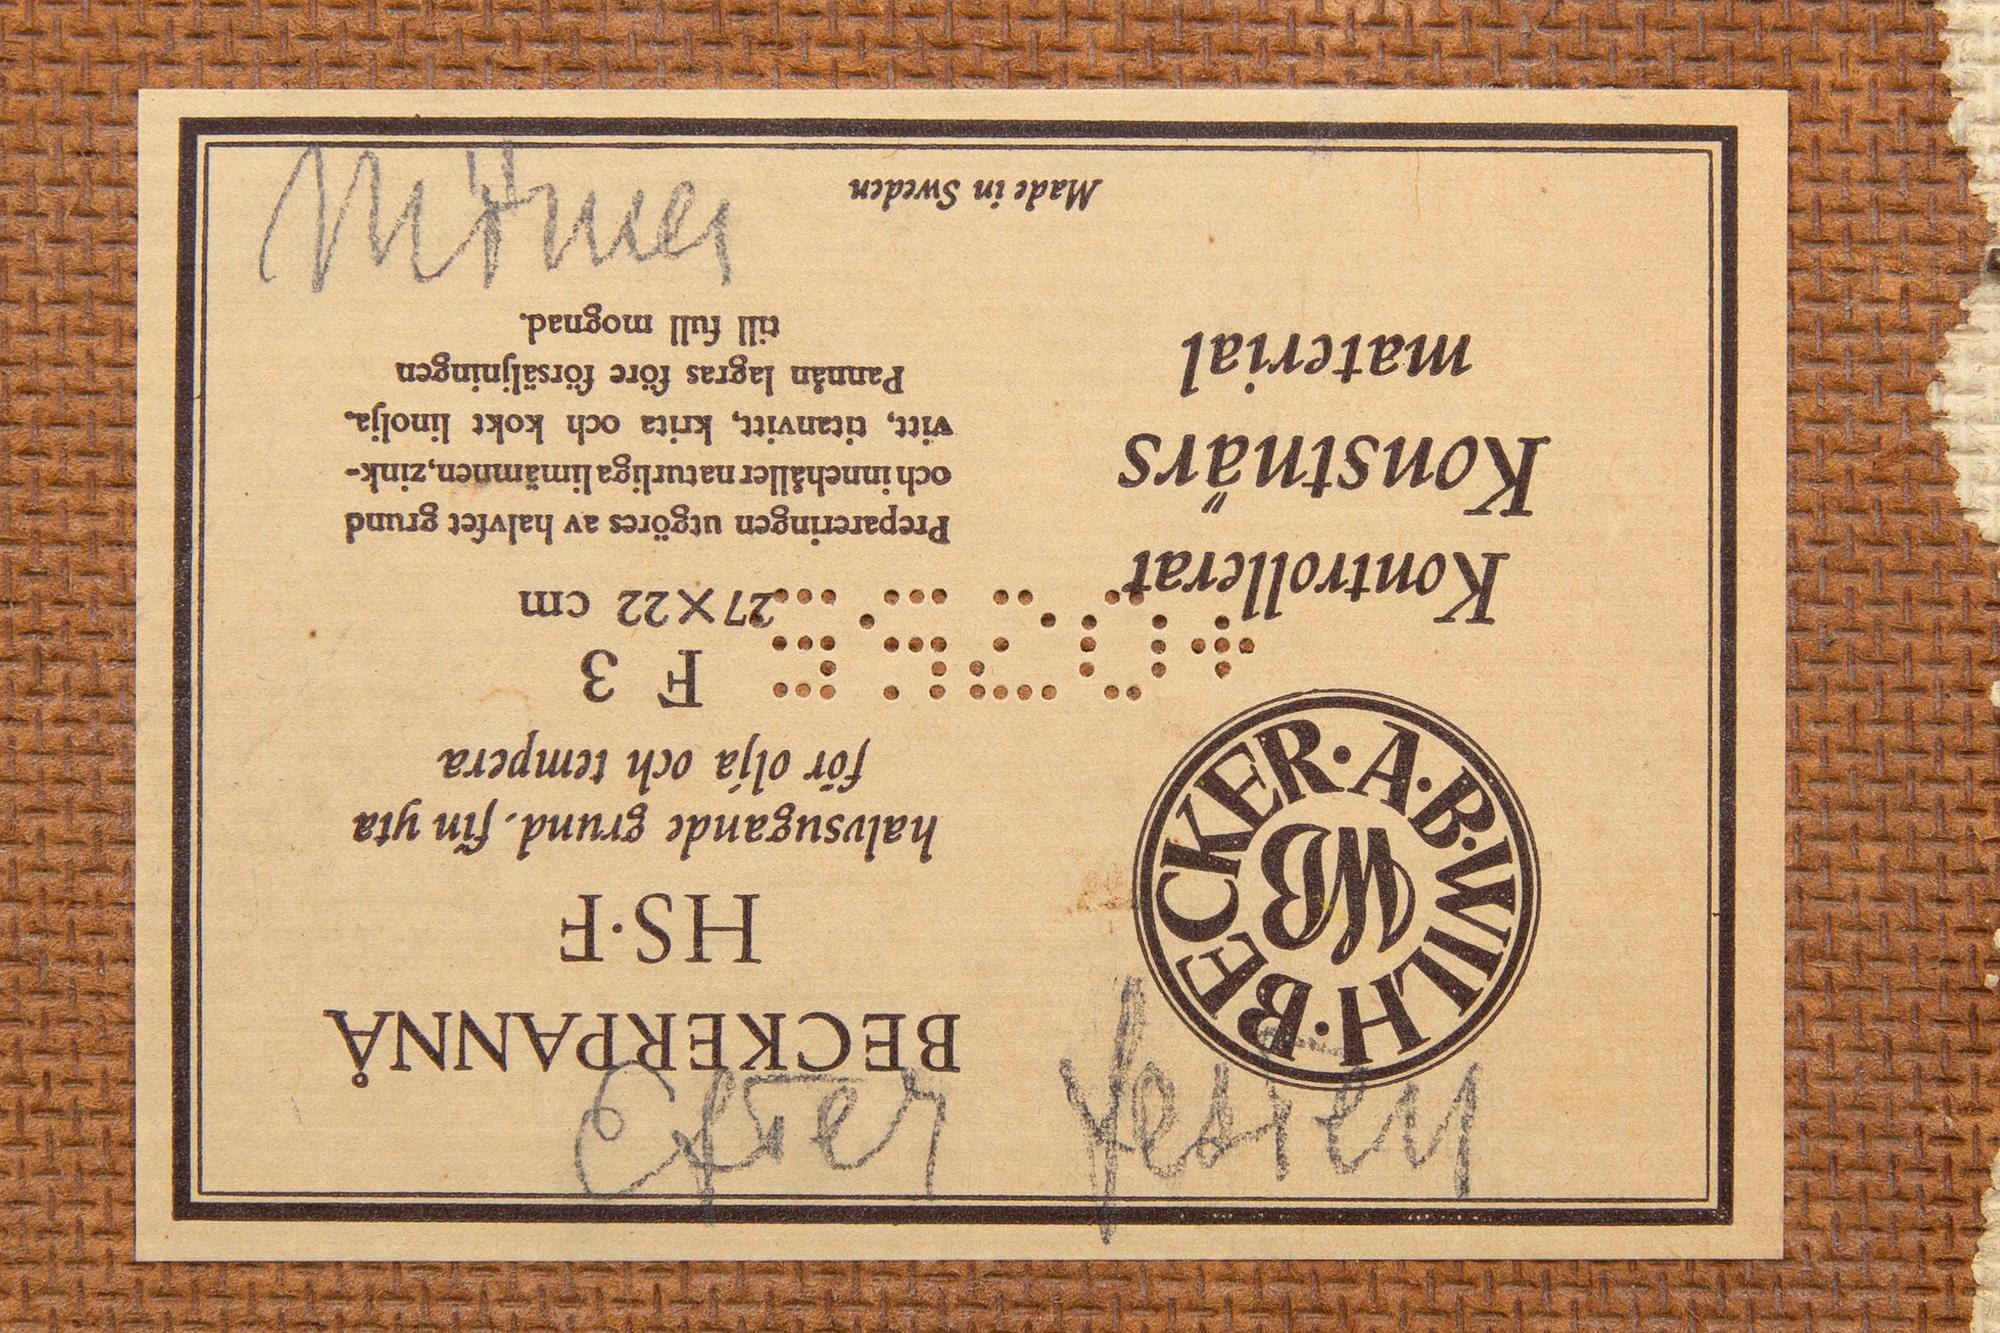 Mörner
BECKERPANNÅ
HS·F
halvsugande grund. fin yta
för olja och tempera
F 3
27×22 cm
Prepareringen utgöres av halvfet grund
och innehåller naturliga limämnen, zink-
vitt, titanvitt, krita och kokt linolja.
Pannån lagras före försäljningen
till full mognad.
A.B. WILH. BECKER
WB
Kontrollerat
Konstnärs
material
Made in Sweden
Efter festen